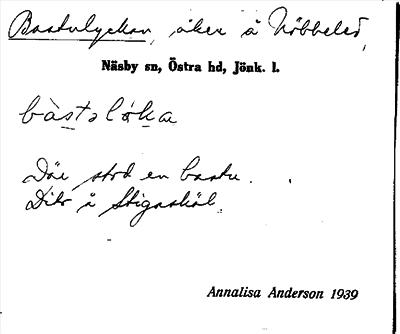 Bastulyckan, åker å Nöbbeled,
Näsby sn, Östra hd, Jönk. l.
bàstəlo̞ka
Där stod en bastu.
Dito å Stigaskäl.
Annalisa Anderson 1939